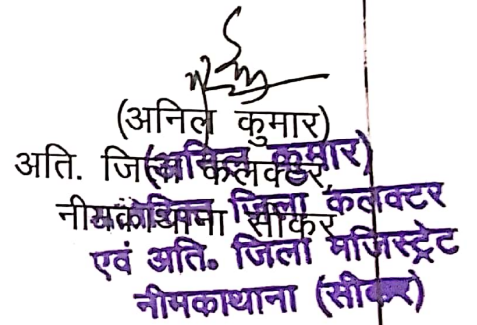 (अनिल कुमार)
अति. जिला कलक्टर,
नीमकाथाना सीकर
(अनिल कुमार)
अतिरिक्त जिला कलक्टर
एवं अति० जिला मजिस्ट्रेट
नीमकाथाना (सीकर)